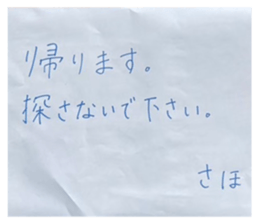 帰ります。
探さないで下さい。
さほ